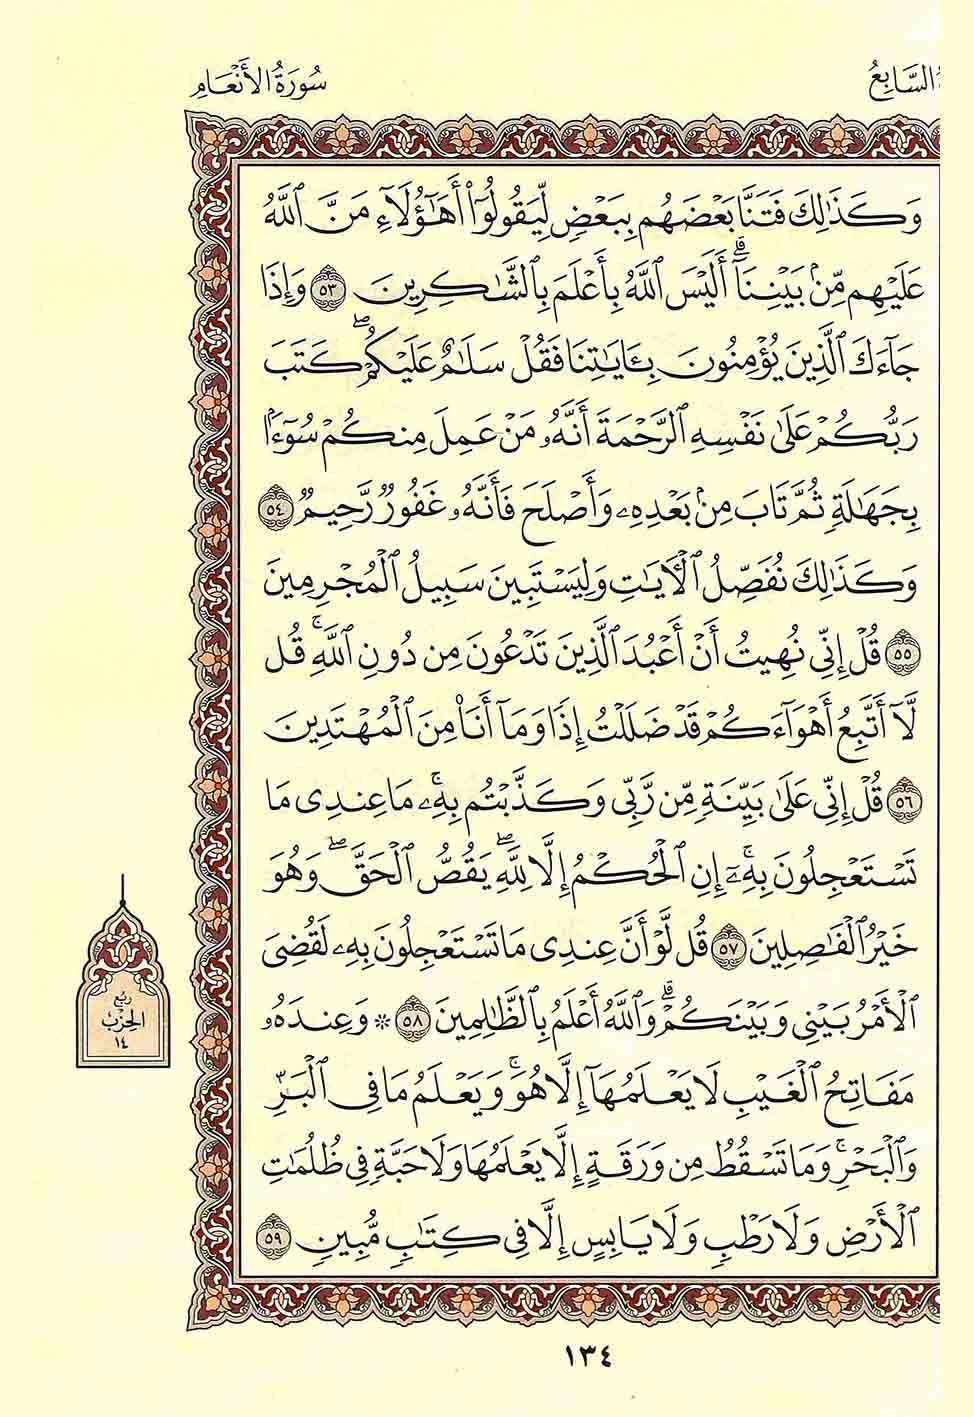 السَّابِعُ
سُورَةُ الأَنْعَامِ
وَكَذَٰلِكَ فَتَنَّا بَعْضَهُم بِبَعْضٍ لِّيَقُولُوٓا۟ أَهَـٰٓؤُلَآءِ مَنَّ ٱللَّهُ
عَلَيْهِم مِّنۢ بَيْنِنَآ ۗ أَلَيْسَ ٱللَّهُ بِأَعْلَمَ بِٱلشَّـٰكِرِينَ ٥٣ وَإِذَا
جَآءَكَ ٱلَّذِينَ يُؤْمِنُونَ بِـَٔايَـٰتِنَا فَقُلْ سَلَـٰمٌ عَلَيْكُمْ ۖ كَتَبَ
رَبُّكُمْ عَلَىٰ نَفْسِهِ ٱلرَّحْمَةَ أَنَّهُۥ مَنْ عَمِلَ مِنكُمْ سُوٓءًۢا
بِجَهَـٰلَةٍ ثُمَّ تَابَ مِنۢ بَعْدِهِۦ وَأَصْلَحَ فَأَنَّهُۥ غَفُورٌ رَّحِيمٌ ٥٤
وَكَذَٰلِكَ نُفَصِّلُ ٱلْـَٔايَـٰتِ وَلِيَسْتَبِينَ سَبِيلُ ٱلْمُجْرِمِينَ
٥٥ قُلْ إِنِّى نُهِيتُ أَنْ أَعْبُدَ ٱلَّذِينَ تَدْعُونَ مِن دُونِ ٱللَّهِ ۚ قُل
لَّآ أَتَّبِعُ أَهْوَآءَكُمْ قَدْ ضَلَلْتُ إِذًا وَمَآ أَنَا۠ مِنَ ٱلْمُهْتَدِينَ
٥٦ قُلْ إِنِّى عَلَىٰ بَيِّنَةٍ مِّن رَّبِّى وَكَذَّبْتُم بِهِۦ ۚ مَا عِندِى مَا
تَسْتَعْجِلُونَ بِهِۦٓ ۚ إِنِ ٱلْحُكْمُ إِلَّا لِلَّهِ ۖ يَقُصُّ ٱلْحَقَّ ۖ وَهُوَ
خَيْرُ ٱلْفَـٰصِلِينَ ٥٧ قُل لَّوْ أَنَّ عِندِى مَا تَسْتَعْجِلُونَ بِهِۦ لَقُضِىَ
ٱلْأَمْرُ بَيْنِى وَبَيْنَكُمْ ۗ وَٱللَّهُ أَعْلَمُ بِٱلظَّـٰلِمِينَ ٥٨ * وَعِندَهُۥ
مَفَاتِحُ ٱلْغَيْبِ لَا يَعْلَمُهَآ إِلَّا هُوَ ۚ وَيَعْلَمُ مَا فِى ٱلْبَرِّ
وَٱلْبَحْرِ ۚ وَمَا تَسْقُطُ مِن وَرَقَةٍ إِلَّا يَعْلَمُهَا وَلَا حَبَّةٍ فِى ظُلُمَـٰتِ
ٱلْأَرْضِ وَلَا رَطْبٍ وَلَا يَابِسٍ إِلَّا فِى كِتَـٰبٍ مُّبِينٍ ٥٩
رُبُع
الحِزْب
١٤
١٣٤